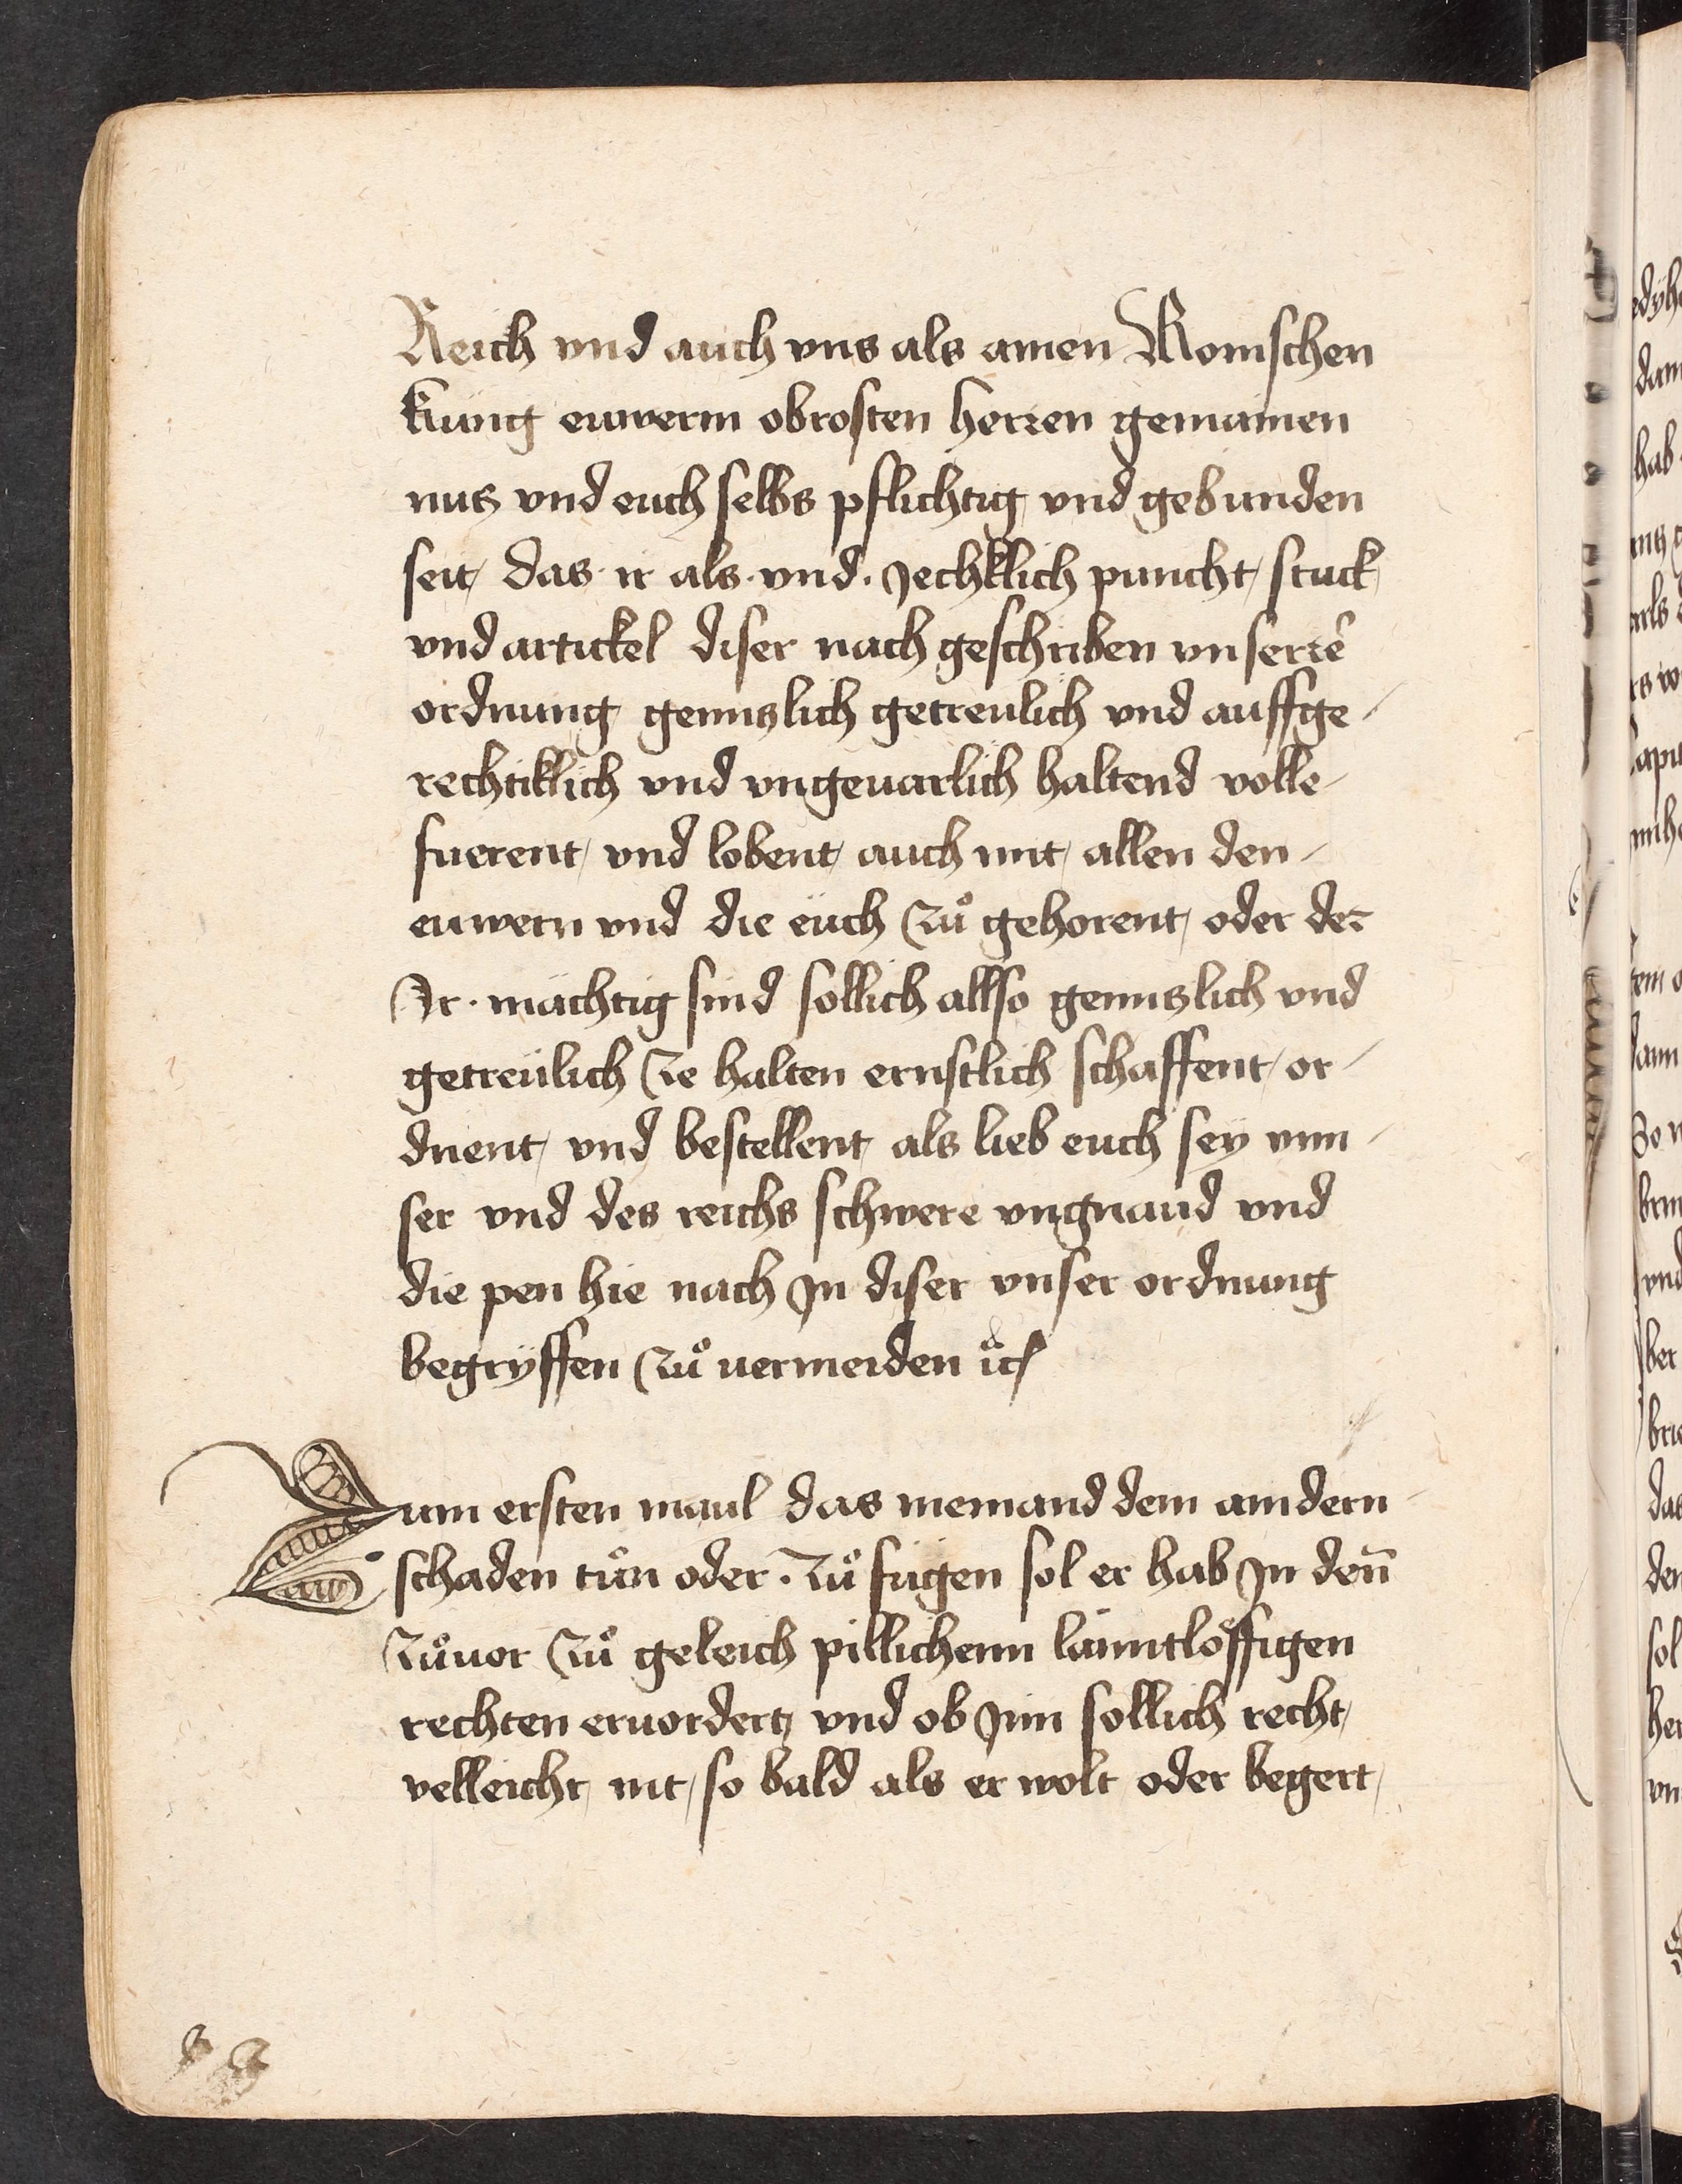 Reich vnd auch vns als ainen Romschen
küng euwerm obrosten herren gemainen
nutz vnd euch selbs pflichtig vnd gebunden
seit, das ir als · vnd · Jechklich puncht, stuck,
vnd artickel diser nach geschriben vnserrē
ordnung gentzlich getreulich vnd auffge-
rechtiklich vnd vngeuarlich haltend volle-
fuerent, vnd lobent, auch mit, allen den-
euwern vnd die eüch Zuͦ gehorent, oder der
Ir · mächtig sind söllich allso gentzlich vnd
getreülich Ze halten ernstlich schaffent, or-
dnent, vnd bestellent, als lieb euch seÿ vnn-
ser vnd des reichs schwere vngnaud vnd
die pen hie nach Jn diser vnser ordnung
begrÿffen Zuͦ uermeiden
Zum ersten maul das niemand dem anndern
schaden tuͦn oder · Zuͦ fügen sol er hab Jn den̄
Zuͦuor Zuͦ geleich pillichenn lanntlöffigen
rechten eruordertz vnd ob Jm sollich recht,
velleicht, nit, so bald als er wolt oder begert,